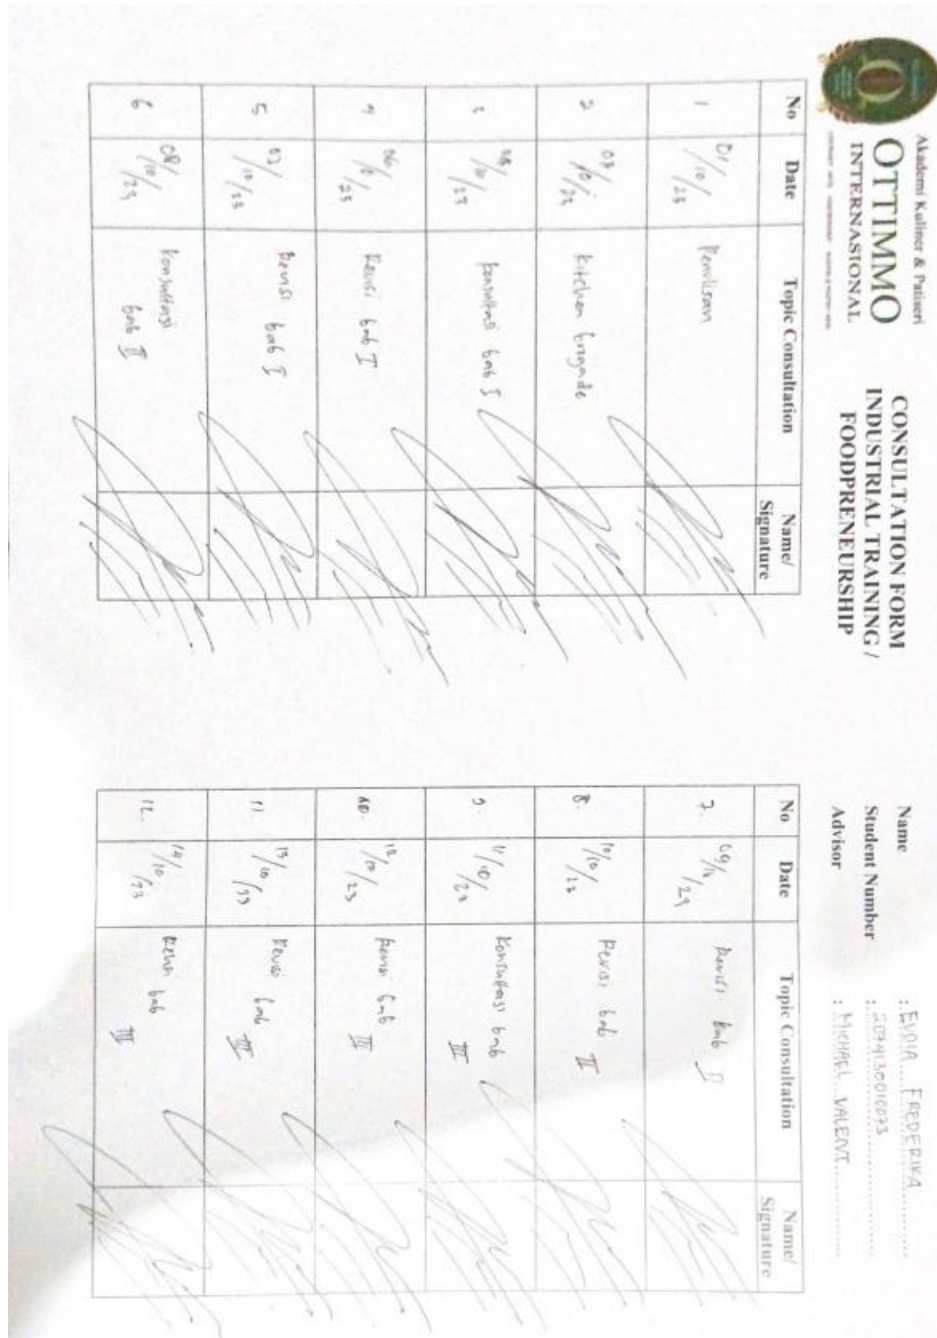 Akademi Kuliner & Patiseri
OTTIMMO
INTERNASIONAL
CONSULTATION FORM
INDUSTRIAL TRAINING /
FOODPRENEURSHIP
Name : EVDIA FREDERIKA
Student Number : 2074130010073
Advisor : MICHAEL VALENT
No Date Topic Consultation Name/ Signature
1 01/10/23 Penulisan
2 03/10/22 kitchen brigade
05/10/23 konsultasi bab I
06/10/23 Revisi bab I
5 07/10/23 Revisi bab I
6 08/10/23 konsultasi bab II
No Date Topic Consultation Name/ Signature
7. 09/10/23 Revisi bab II
8. 10/10/22 Revisi bab II
9. 11/10/23 Konsultasi bab III
10. 12/10/23 Revisi bab III
11. 13/10/33 Revisi bab III
12. 14/10/23 Revisi bab III